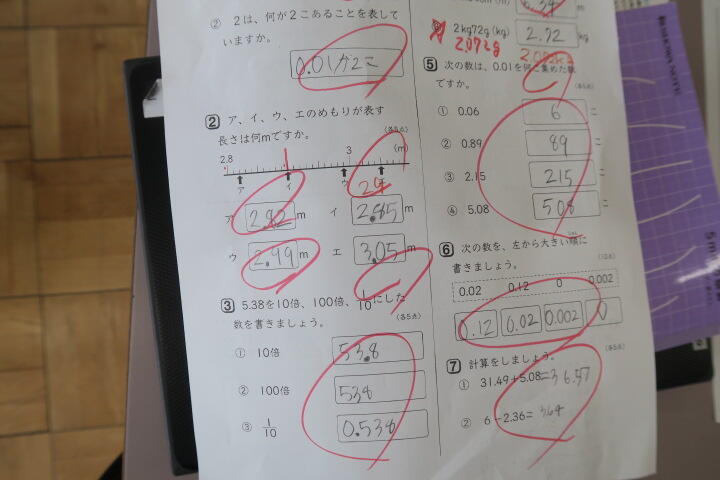 ② 2は、何が2こあることを表して
いますか。
0.01が2こ
2 ア、イ、ウ、エのめもりが表す
長さは何mですか。
(各5点)
2.8 3 (m)
ア イ ウ エ
ア 2.82 m イ 2.85 m
ウ 2.99 m エ 3.05 m
3 5.38を10倍、100倍、1/10にした
数を書きましょう。
(各5点)
① 10倍 53.8
② 100倍 538
③ 1/10 0.538
2kg72g(kg) 2.72 kg
2.072g
5 次の数は、0.01を何こ集めた数
ですか。
(各5点)
① 0.06 6 こ
② 0.89 89 こ
③ 2.15 215 こ
④ 5.08 508 こ
6 次の数を、左から大きい順に
書きましょう。
0.02 0.12 0 0.002
0.12 0.02 0.002 0
7 計算をしましょう。
(各5点)
① 31.49+5.08=36.57
② 6-2.36=3.64